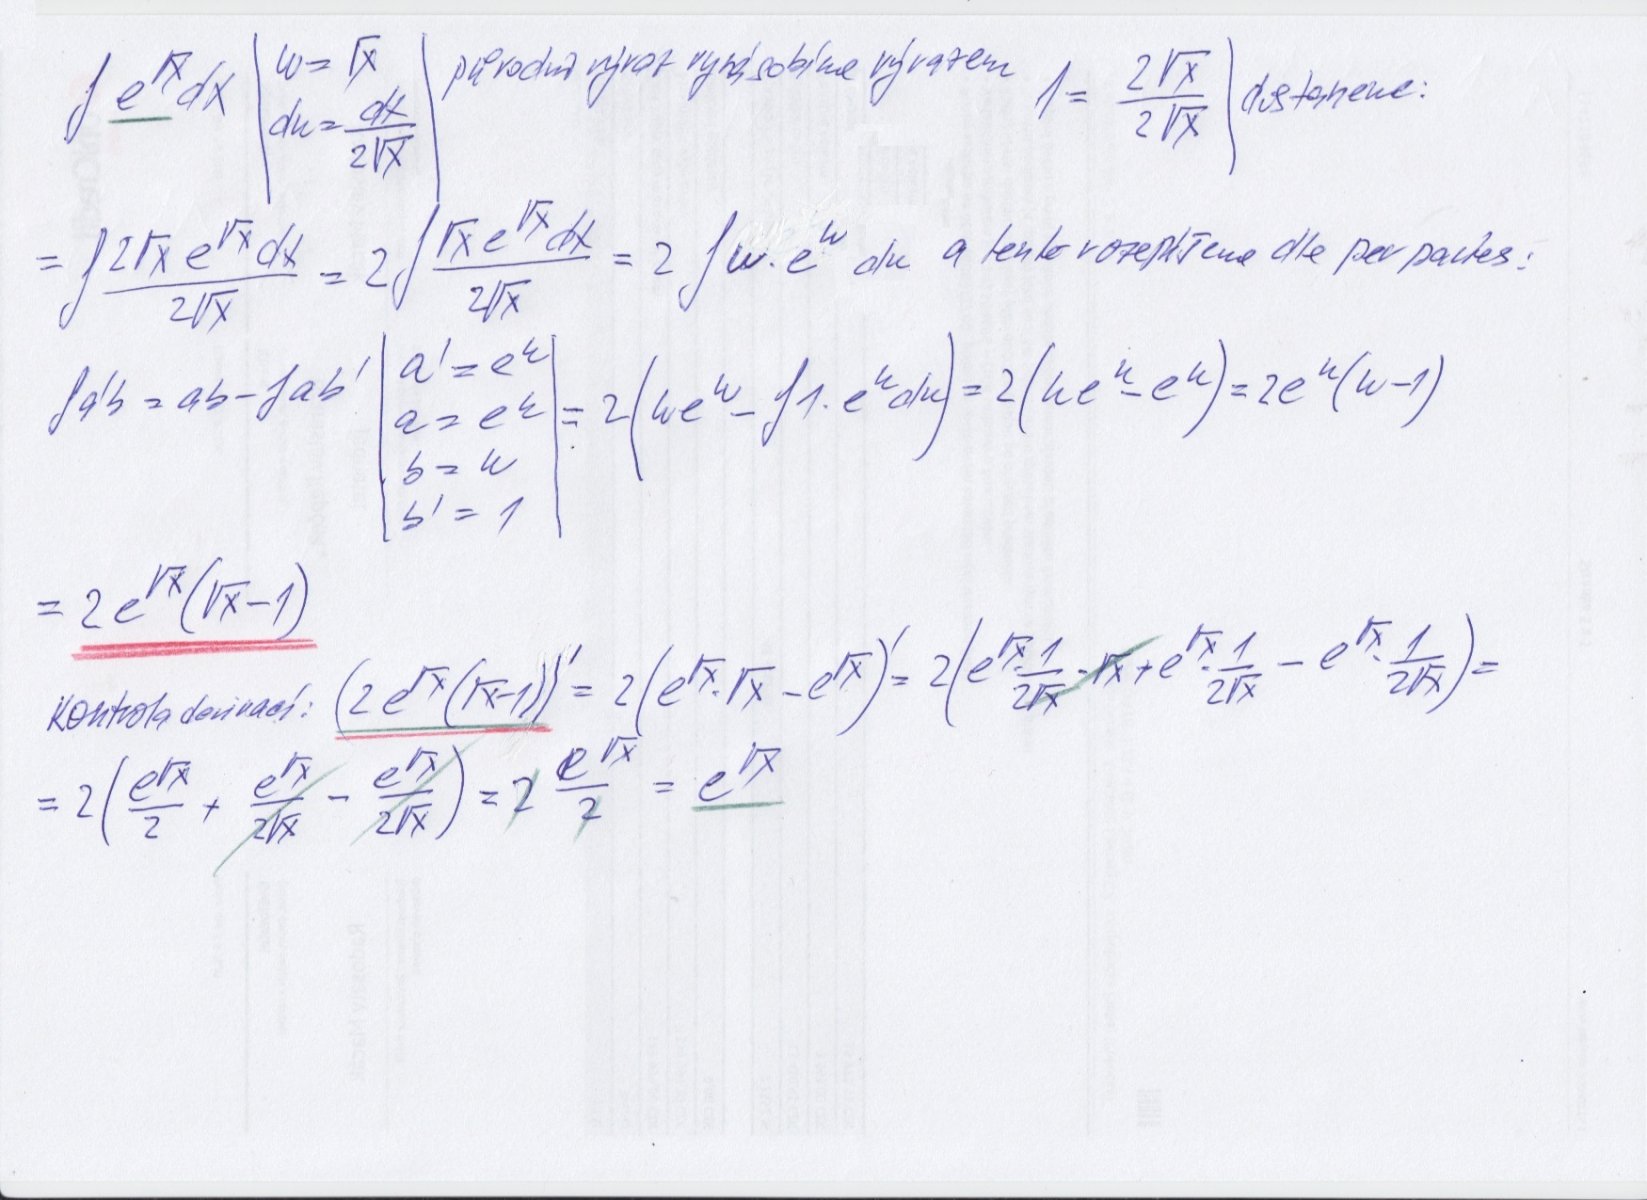 ∫ e^√x dx | u = √x, du = dx/(2√x) | původní výraz vynásobíme výrazem 1 = 2√x/(2√x) | dostaneme:
= ∫ 2√x e^√x dx/(2√x) = 2 ∫ √x e^√x dx/(2√x) = 2 ∫ u·e^u du a tento rozepíšeme dle per partes:
∫a'b = ab - ∫ab' | a' = e^u, a = e^u, b = u, b' = 1 | = 2(ue^u - ∫1·e^u du) = 2(ue^u - e^u) = 2e^u(u-1)
= 2e^√x(√x-1)
Kontrola derivací: (2e^√x(√x-1))' = 2(e^√x·√x - e^√x)' = 2(e^√x·1/(2√x)·√x + e^√x·1/(2√x) - e^√x·1/(2√x)) =
= 2(e^√x/2 + e^√x/(2√x) - e^√x/(2√x)) = 2 e^√x/2 = e^√x